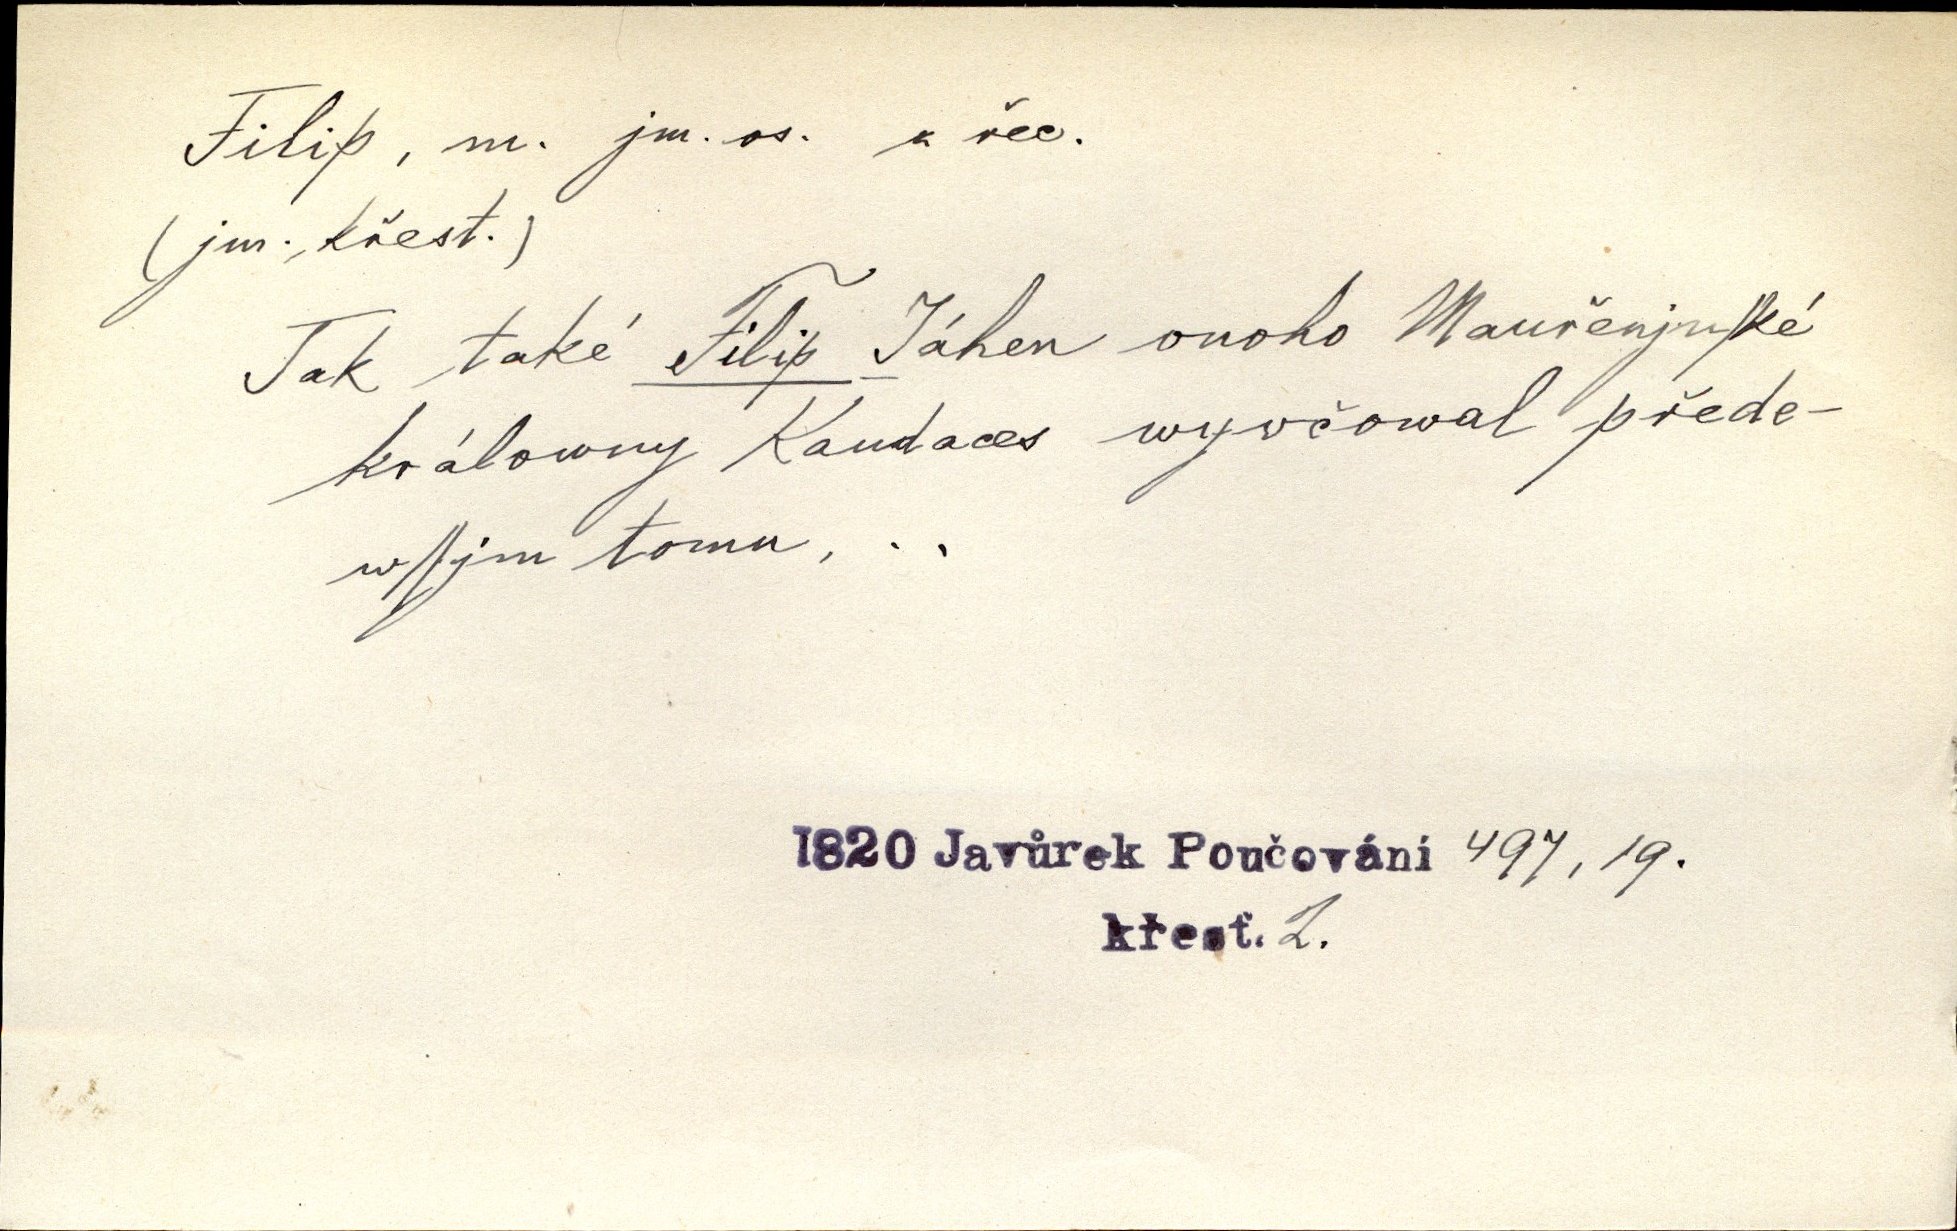 Filip, m. jm. os. z řec.
(jm. křest.)
Tak také Filip Jáhen onoho Mauřenjnſké
králowny Kandaces wyvčowal přede-
wſſjm tomu, ..
1820 Javůrek Poučování 497, 19.
křesť. 2.